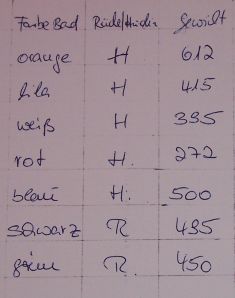 Farbe Bad Rüde/Hündin Gewicht
orange H 612
lila H 415
weiß H 395
rot H. 272
blau H. 500
schwarz R 435
grün R. 450